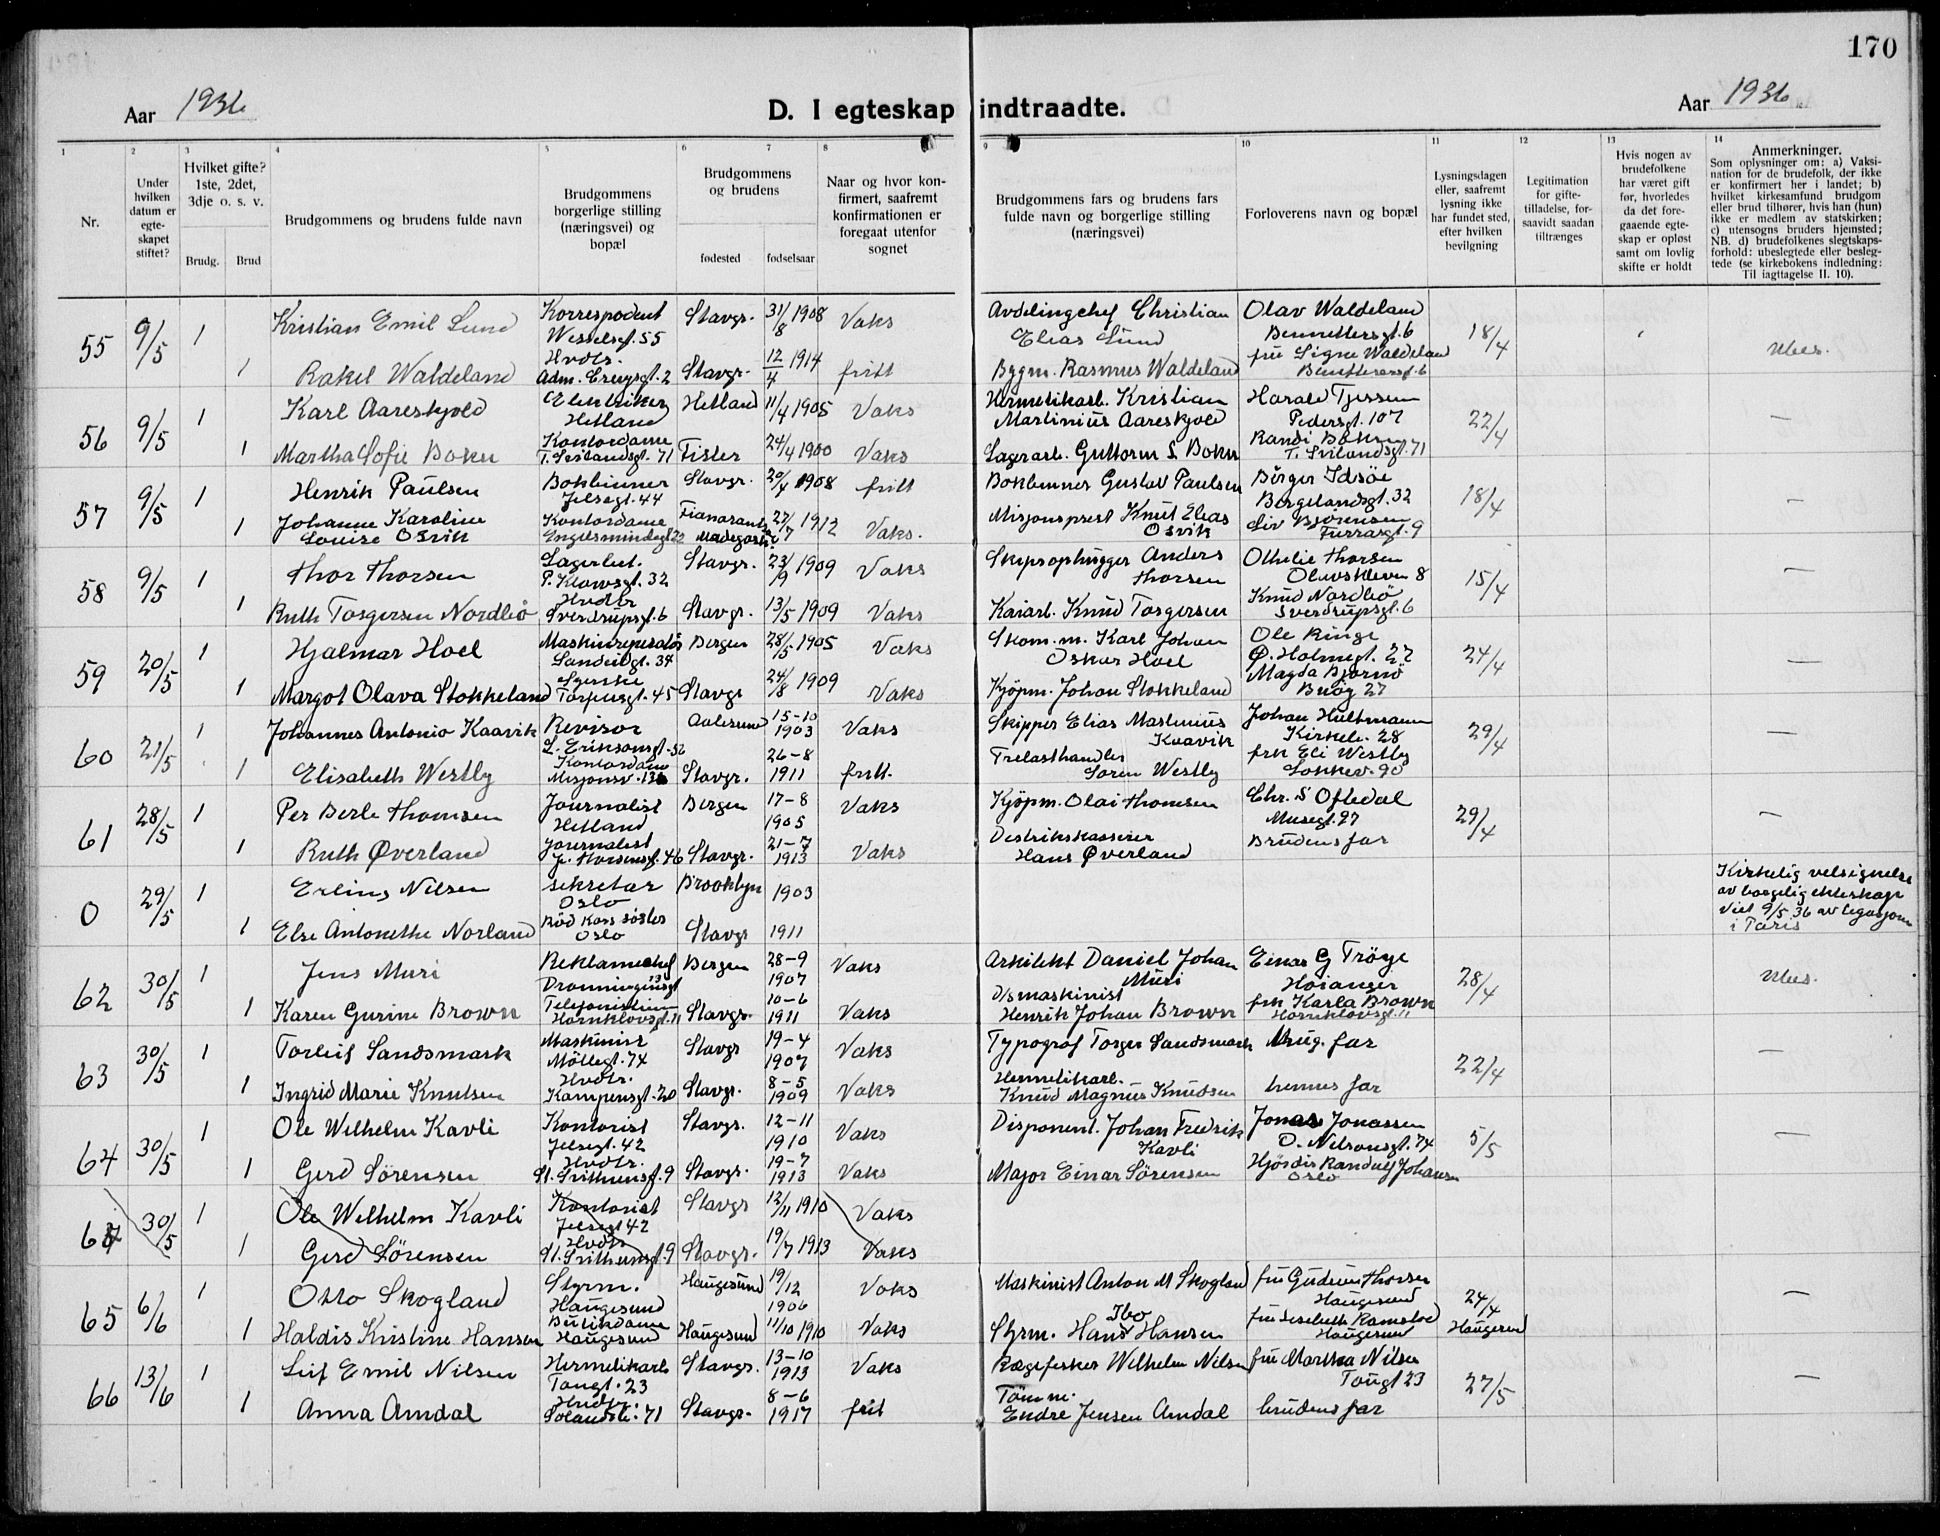 170
Aar 1936
D. I egteskap indtraadte.
Aar 1936
1 2 3 4 5 6 7 8 9 10 11 12 13 14
Nr.
Under hvilken datum er egteskapet stiftet?
Hvilket gifte? 1ste, 2det, 3dje o. s. v.
Brudg. Brud
Brudgommens og brudens fulde navn
Brudgommens borgerlige stilling (næringsvei) og bopæl
Brudgommens og brudens
fødested fødselsaar
Naar og hvor konfirmert, saafremt konfirmationen er foregaat utenfor sognet
Brudgommens fars og brudens fars fulde navn og borgerlige stilling (næringsvei)
Forloverens navn og bopæl
Lysningsdagen eller, saafremt lysning ikke har fundet sted, efter hvilken bevilgning
Legitimation for giftetilladelse, forsaavidt saadan tiltrænges
Hvis nogen av brudefolkene har været gift før, hvorledes da det foregaaende egteskap er opløst samt om lovlig skifte er holdt
Anmerkninger.
Som oplysninger om: a) Vaksination for de brudefolk, der ikke er konfirmert her i landet; b) hvilket kirkesamfund brudgom eller brud tilhører, hvis han (hun) ikke er medlem av statskirken; c) utensogns bruders hjemsted; NB. d) brudefolkenes slegtskapsforhold: ubeslegtede eller beslegtede (se kirkebokens indledning: Til iagttagelse II. 10).
55 9/5 1 Kristian Emil Lund Korrespodent Wesselsgt. 55 Stavgr. 31/8 1908 Vaks Avdelingchef Christian Elias Lund Olav Waldeland Bennettersgt. 6 18/4
1 Rakel Waldeland Hvdtr. Adm. Cruysgt. 2 Stavgr. 12/4 1914 fritt Bygm. Rasmus Waldeland fru Signe Waldeland Bennettersgt. 6 Ubes.
56 9/5 1 Karl Aareskjold Elektriker Hetland Hetland 11/4 1905 Vaks Hermetikarb. Kristian Martinius Aareskjold Harald Tjessem Pedersgt. 107 22/4 —
1 Martha Sofie Boken Kontordame T. Svilandsgt. 71 Fister 24/4 1900 Vaks Lagerarb. Guttorm S Boken Randi Boken T. Svilandsgt. 71
57 9/5 1 Henrik Paulsen Bokbinner Jelsagt. 44 Stavgr. 20/4 1908 fritt Bokbinner Gustav Paulsen Børger Idsøe Bergelandsgt. 32 18/4 —
1 Johanne Karoline Louise Osvik Kontordame Engelsmindegt 22 27/7 1912 Vaks. Misjonsprest Knut Elias Osvik Liv Bjørensen Furrasgt. 9
58 9/5 1 Thor Thorsen Lagerbet. P. Klowsgt. 32 Stavgr. 23/9 1909 Vaks Skipsophugger Anders Thorsen Othilie Thorsen Olavskleven 8 15/4 —
1 Ruth Torgersen Nordbø Hvdtr Sverdrupsgt. 6 Stavgr. 13/5 1909 Vaks Kaiarb. Knud Torgersen Knud Nordbø Sverdrupsgt. 6
59 20/5 1 Hjalmar Hoel Maskinreperatør Sandeidgt. 34 Bergen 28/5 1905 Vaks Skom. m. Karl Johan Oskar Hoel Ole Ringe Ø. Holmegt. 22 24/4 —
1 Margot Olava Stokkeland Syerske Torfæusgt. 45 Stavgr 24/8 1909 Vaks Kjøpm. Johan Stokkeland Magda Bjørnø Buøy 27
60 21/5 1 Johannes Antonio Kaarvik Revisor L. Eriksonsgt. 52 Aalesund 15-10 1903 Vaks Skipper Elias Martinius Kaavik Johan Hultmann Kirkeb. 28 29/4 —
1 Elisabeth Westby Kontordame Misjonsv. 13b Stavgr. 26-8 1911 fritt. Trelasthandler Søren Westby frk Eli Westby Lokkev. 90
61 28/5 1 Per Berle Thomsen Journalist Hetland Bergen 17-8 1905 Vaks Kjøpm. Olai Thomsen Chr. S Oftedal Musegt. 97 29/4 —
1 Ruth Øverland Journalist J. Thorsensgt. 46 Stavgr. 21-7 1913 Vaks Destriktskasserer Hans Øverland Brudens far
0 29/5 1 Erling Nilsen sekretær Oslo Brooklyn 1903 Kirkelig velsignelse av borgelig ekteskap viet 9/5 36 av legasjonen i Paris
1 Else Antonette Norland Rød Kors søster Oslo Stavgr 1911
62 30/5 1 Jens Muri Reklamechef Dronningensgt 13 Bergen 28-9 1907 Vaks Arkitekt Daniel Johan Muri Einar G Trøye Høianger 28/4 Ubes.
1 Karen Gurine Brown Telefonistinne Hornklovsgt. 11 Stavgr. 10-6 1911 Vaks D/smaskinist Henrik Johan Brown frk Karla Brown Hornklovsgt. 11
63 30/5 1 Torleif Sandsmark Maskinist Møllegt. 74 Stavgr 19-4 1907 Vaks Typograf Torger Sandsmark Brug. far 22/4 —
1 Ingrid Marie Knutsen Hvdtr. Kampensgt. 20 Stavgr. 8-5 1909 Vaks Hermetikarb. Knud Magnus Knudsen hennes far
64 30/5 1 Ole Wilhelm Kavli Kontorist Jelsegt. 42 Stavgr. 12-11 1910 Vaks Disponent. Johan Fredrik Kavli Jonas Jonassen O. Nilsonsgt. 74 5/5 —
1 Gerd Sørensen Hvdtr. St. Svithunsgt. 9 Stavgr. 19-7 1913 Vaks Major Einar Sørensen Hjørdis Randulf Johansen Oslo
64 30/5 1 Ole Wilhelm Kavli Kontorist Jelsegt 42 Stavgr 12/11 1910 Vaks
1 Gerd Sørensen Hvdtr St. Svithunsgt. 9 Stavgr. 19/7 1913 Vaks
65 6/6 1 Otto Skogland Styrm. Haugesund Haugesund 19/12 1906 Vaks Maskinist Anton M Skogland fru Gudrun Thorsen Haugesund 24/4 Haugesund —
1 Haldis Kristine Hansen Butikdame Haugesund Haugesund 11/10 1910 Vaks Styrm. Hans Ibo Hansen fru Liselbeth Ramstad Haugesund
66 13/6 1 Leif Emil Nilsen Hermetikarb Tougt. 23 Stavgr. 13-10 1913 Vaks Rægefisker Wilhelm Nilsen fru Martha Nilsen Tougt 23 27/5 —
1 Anna Amdal Hvdtr. Solandsb. 71 Stavgr. 8-6 1917 frit Tømm. Endre Jensen Amdal brudens far